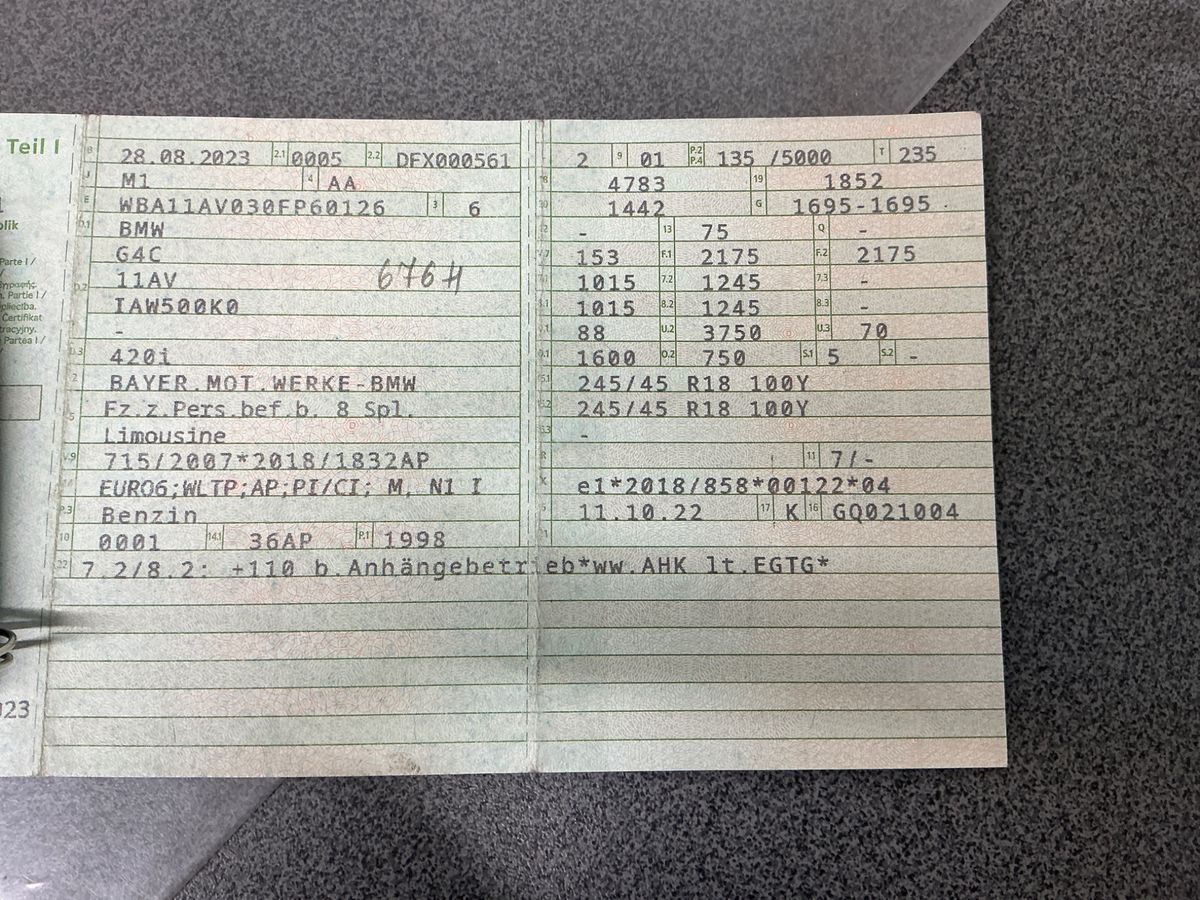 Teil I
B 28.08.2023 2.1 0005 2.2 DFX000561
J M1 4 AA
E WBA11AV030FP60126 3 6
D.1 BMW
G4C
D.2 11AV 6764
IAW500K0
-
D.3 420i
2 BAYER.MOT.WERKE-BMW
5 Fz.z.Pers.bef.b. 8 Spl.
Limousine
V.9 715/2007*2018/1832AP
EURO6;WLTP;AP;PI/CI; M, N1 I
P.3 Benzin
10 0001 14.1 36AP P.1 1998
22 7.2/8.2: +110 b.Anhängebetrieb*ww.AHK lt.EGTG*
2 9 01 P.2 P.4 135 /5000 T 235
18 4783 19 1852
1442 G 1695-1695
- 13 75 Q -
153 F.1 2175 F.2 2175
1015 7.2 1245 7.3 -
1015 8.2 1245 8.3 -
88 U.2 3750 U.3 70
1600 O.2 750 S.1 5 S.2 -
245/45 R18 100Y
245/45 R18 100Y
-
R 11 7/-
K e1*2018/858*00122*04
11.10.22 17 K 16 GQ021004
olik
Parte I /
. Partie I /
Certifikat
tracyjny.
Partea I /
023